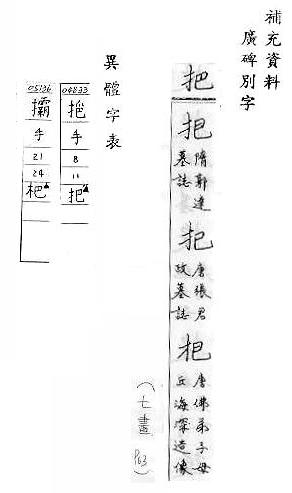 補充資料
廣碑別字
把
把
隋郭達
墓誌
把
唐張君
政墓誌
杷
唐佛弟子母
丘海深造像
(七畫 P63)
異體字表
04833
手
8
11
把▲
05136
手
21
24
杷▲